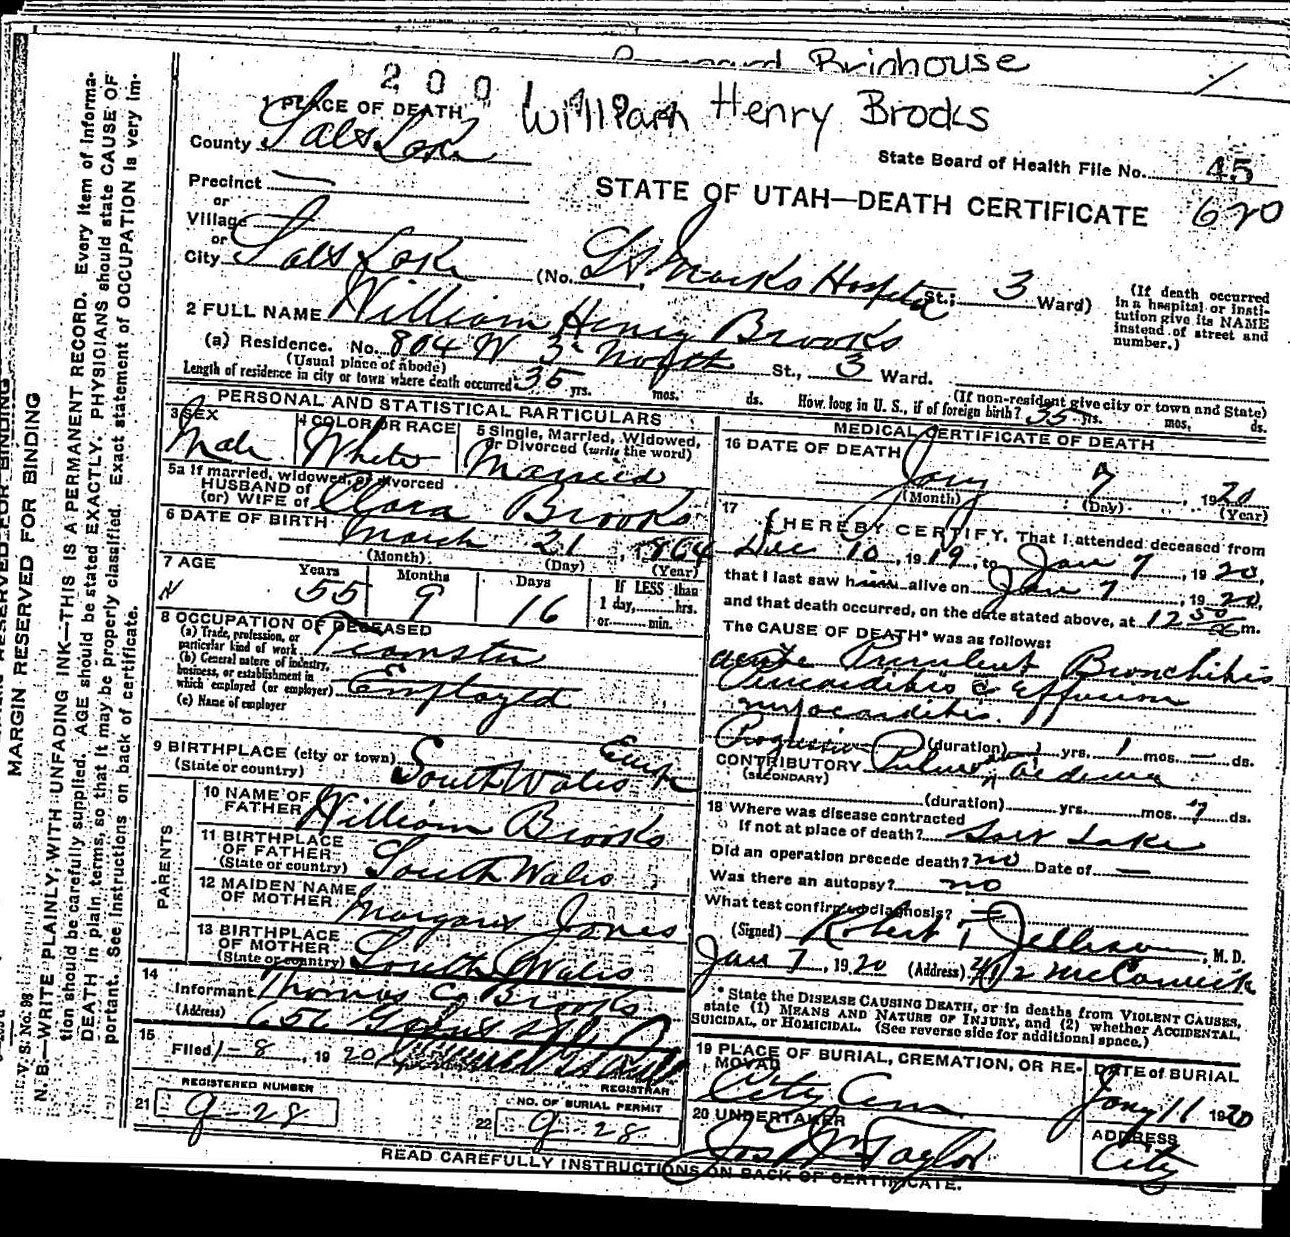 Brinhouse
2001
William Henry Brooks
1 PLACE OF DEATH
County Salt Lake
State Board of Health File No. 45
Precinct —
or
STATE OF UTAH—DEATH CERTIFICATE 620
Village
or
City Salt Lake (No. St Marks Hospital St.; 3 Ward)
(If death occurred in a hospital or institution give its NAME instead of street and number.)
2 FULL NAME William Henry Brooks
(a) Residence. No. 804 W 3d North St., 3 Ward.
(Usual place of abode)
(If non-resident give city or town and State)
Length of residence in city or town where death occurred 35 yrs. mos. ds. How long in U. S., if of foreign birth? 35 yrs. mos. ds.
PERSONAL AND STATISTICAL PARTICULARS
3 SEX Male
4 COLOR OR RACE White
5 Single, Married, Widowed, or Divorced (write the word) Married
5a If married, widowed, or divorced
HUSBAND of
(or) WIFE of Clara Brooks
6 DATE OF BIRTH March 21, 1864
(Month) (Day) (Year)
7 AGE Years 55 Months 9 Days 16
If LESS than
1 day, hrs.
or min.
8 OCCUPATION OF DECEASED
(a) Trade, profession, or
particular kind of work Teamster
(b) General nature of industry,
business, or establishment in
which employed (or employer) Employed
(c) Name of employer
9 BIRTHPLACE (city or town)
(State or country) South Wales
PARENTS
10 NAME OF
FATHER William Brooks
11 BIRTHPLACE
OF FATHER
(State or country) South Wales
12 MAIDEN NAME
OF MOTHER Margaret Jones
13 BIRTHPLACE
OF MOTHER
(State or country) South Wales
14
Informant Thomas C. Brooks
(Address)
15
Filed 1-8, 1920
REGISTRAR
REGISTERED NUMBER
21 9-28
NO. OF BURIAL PERMIT
22 9-28
MEDICAL CERTIFICATE OF DEATH
16 DATE OF DEATH Jany 7, 1920
(Month) (Day) (Year)
17
I HEREBY CERTIFY, That I attended deceased from
Dec 10, 1919, to Jan 7, 1920,
that I last saw him alive on Jan 7, 1920,
and that death occurred, on the date stated above, at 12 50 m.
The CAUSE OF DEATH* was as follows:
acute Purulent Bronchitis
Pericarditis c Effusion
myocarditis.
Progressive (duration) yrs. 1 mos. — ds.
CONTRIBUTORY Pulmon Oedema
(SECONDARY)
(duration) yrs. mos. 7 ds.
18 Where was disease contracted
If not at place of death? Salt Lake
Did an operation precede death? no Date of —
Was there an autopsy? no
What test confirmed diagnosis?
(Signed) Robert T Jellison, M. D.
Jan 7, 1920 (Address) 412 McCornick
* State the DISEASE CAUSING DEATH, or in deaths from VIOLENT CAUSES,
state (1) MEANS AND NATURE OF INJURY, and (2) whether ACCIDENTAL,
SUICIDAL, or HOMICIDAL. (See reverse side for additional space.)
19 PLACE OF BURIAL, CREMATION, OR REMOVAL
City Cem
DATE of BURIAL
Jany 11 1920
20 UNDERTAKER
Jos Wm Taylor
ADDRESS
City
READ CAREFULLY INSTRUCTIONS ON BACK OF CERTIFICATE.
MARGIN RESERVED FOR BINDING
V. S. No. 98
N. B.—WRITE PLAINLY, WITH UNFADING INK—THIS IS A PERMANENT RECORD. Every item of information should be carefully supplied. AGE should be stated EXACTLY. PHYSICIANS should state CAUSE OF DEATH in plain terms, so that it may be properly classified. Exact statement of OCCUPATION is very important. See instructions on back of certificate.